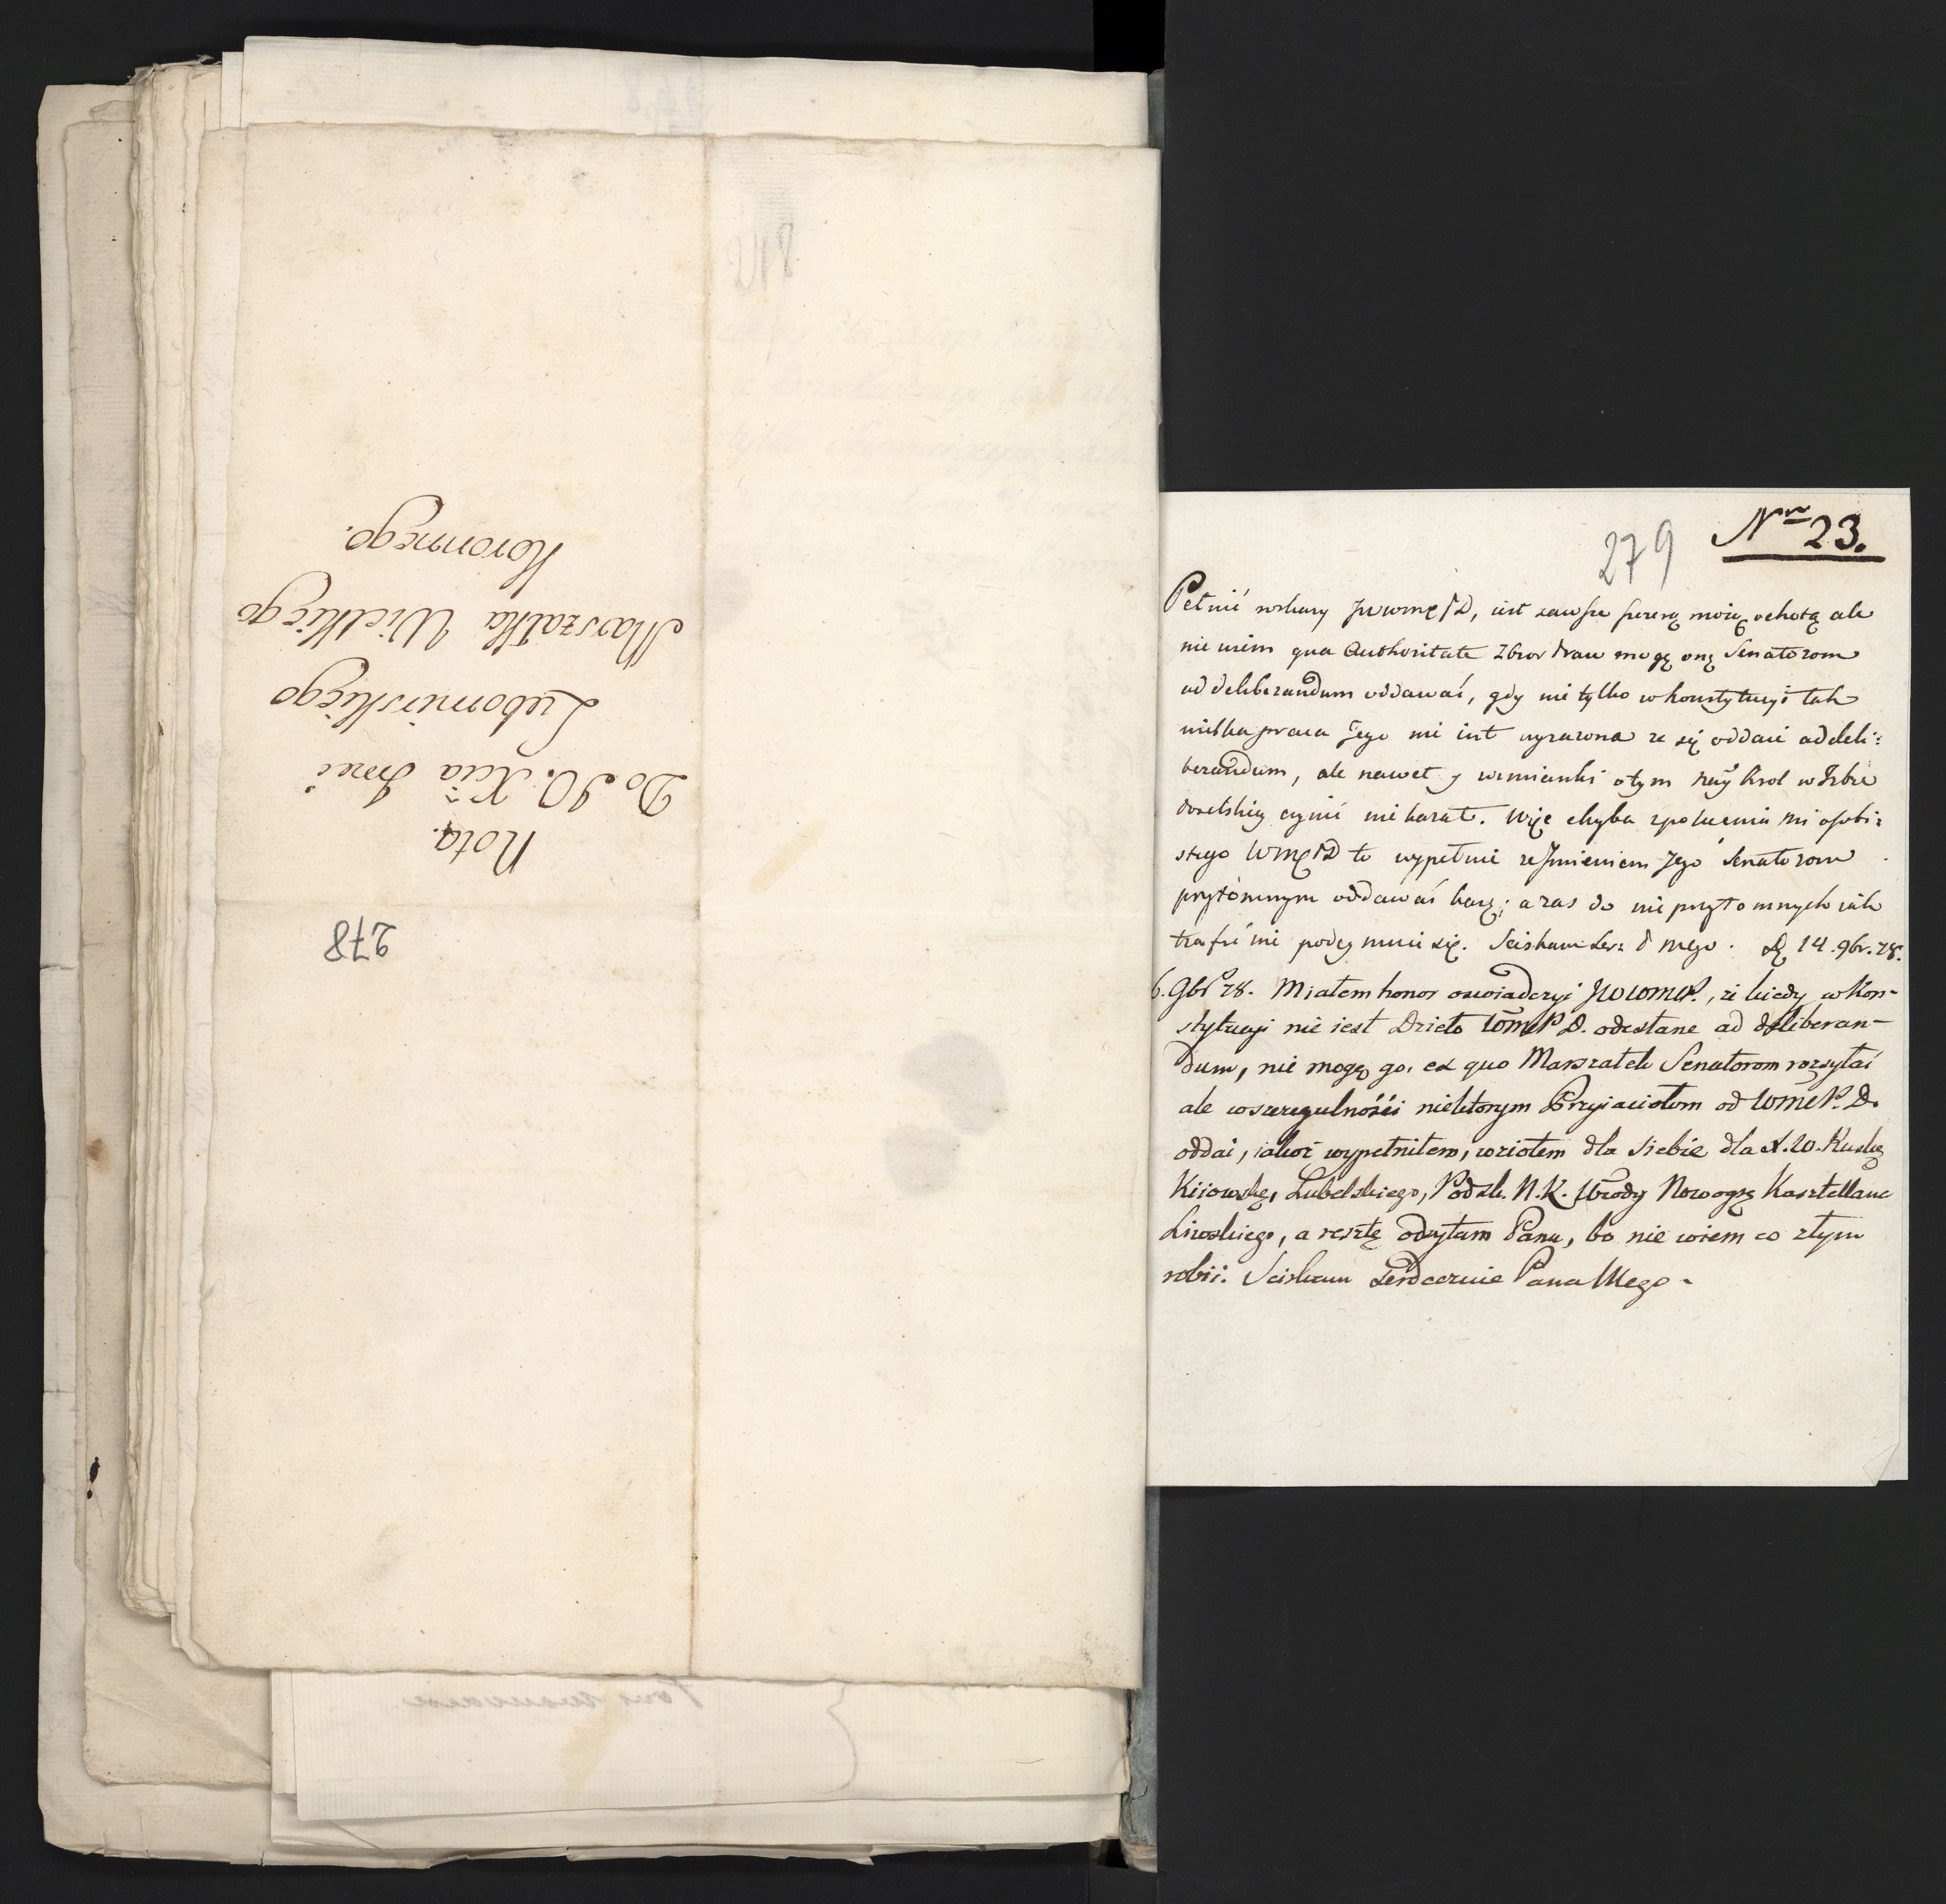 278
Nota.
Do JO. Xcia Jmci
Lubomirskiego
Marszałka Wielkiego
Koronnego.
279
Nro 23.
Pełnić roskazy JWWMCPD, iest zawsze szczerą moią ochotą ale
nie wiem qua Authoritate Zbior Praw mogę onę Senatorom
ad deliberandum oddawać, gdy nie tylko w konstytucyi tak
wielka praca Jego nie iest wyrazona ze się oddaie ad deli:
berandum, ale nawet y wzmianki o tym Nayj Krol w Izbie
Poselskiey czynić nie kazał. Więc chyba z polecenia mi osobi:
stego WMCPD to wypełnie ze Jmieniem Jego Senatorom
przytomnym oddawać karzę; a zas do nieprzytomnych iak
trafić nie podeymuie się. Sciskam Ser: P mego. D 14. 9br. 78.
6. 9br 78. Miałem honor oswiadczyć JWWMP., iż kiedy w Kon-
stytucyi nie iest Dzieło WMP D. odesłane ad deliberan-
dum, nie mogę go, ex quo Marszałek Senatorom rozsyłać
ale w szczegulności niektorym Przyiaciołom od WMCP. D.
oddać, iakoż wypełniłem, wziołem dla siebie dla X. W. Ruskę
Kiiowskę, Lubelskiego, Podsk. N. K. Wdy Nowogrę Kasztellana
Liwskiego, a resztę odsyłam Panu, bo nie wiem co z tym
robić. Sciskam Serdecznie Pana Mego -